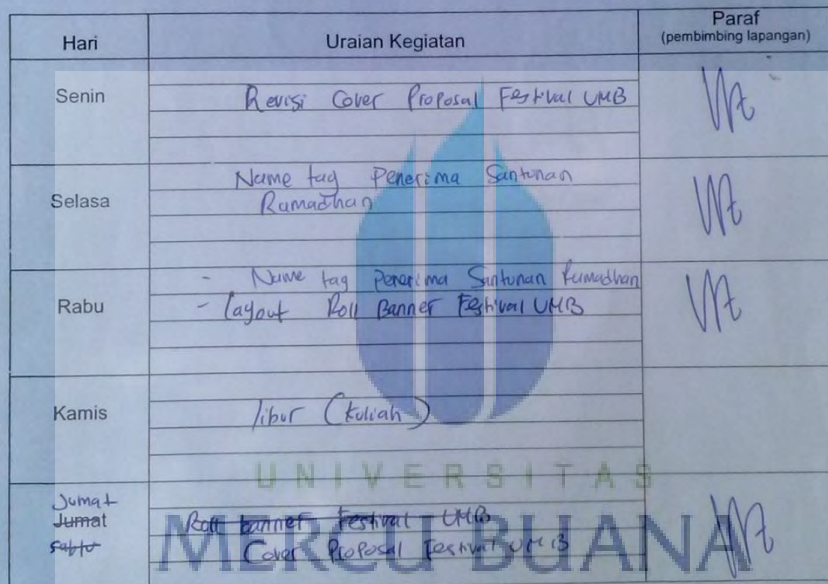 Hari Uraian Kegiatan Paraf
(pembimbing lapangan)
Senin Revisi Cover Proposal Festival UMB
Selasa Name tag Penerima Santunan
Ramadhan
Rabu - Name tag Penerima Santunan Ramadhan
- Layout Roll Banner Festival UMB
Kamis libur (Kuliah)
UNIVERSITAS
Jumat
Jumat Roll banner Festival UMB
Sabtu Cover Proposal Festival UMB
MERCU BUANA